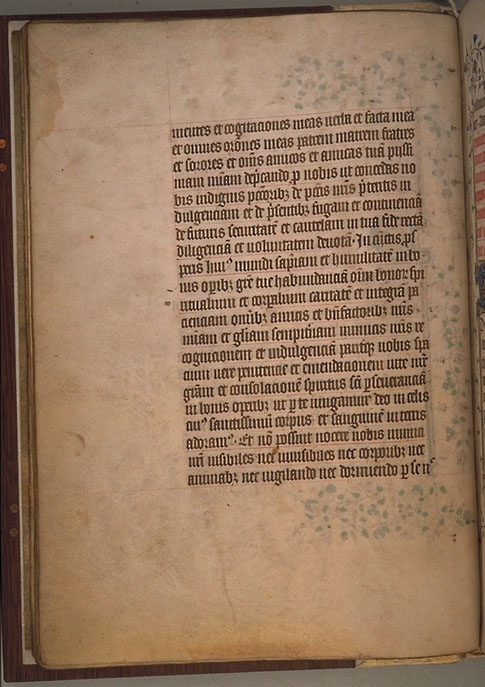 mentes et cogitaciones meas uerba et facta mea
et omnes orōnes meas patrem matrem fratres
et sorores et oīns amicos et amicas tuā pijssi
mam mīam dep̄cando ꝑ nobis ut concedas no
bis indignis pc̄oribꝫ de pctīs nr̄is p̄teritis in
dulgenciam et de p̄sentibꝫ fugam et continenciā
de futuris securitatē et cautelam in tua fide rectā
diligenciā et uoluntatem deuotā · In cūctis ꝓs
peris huiꝰ mundi sapiam et humilitatē in bo
nis oꝑibꝫ grē tue habundanciā oīm bonor spi
ritualium et corꝑalium caritatē et integrā pa
cienciam omībꝫ amicis et bn̄factoribꝫ nr̄is
mīam et gliam sempit̄nam inimicis nr̄is re
cognicionem et indulgenciā pariterꝫ nobis spa
cium uere penitencie et emendacionem uite nr̄e
grām et consolacionē spiritus sc̄i ꝑseueranciā
in bonis operibꝫ ut ꝑ te iungamur deo in celis
cuiꝰ sanctissimū corpus et sanguinē in terris
adoramꝰ · Et nō possint nocere nobis inimici
nr̄i uisibiles nec inuisibiles nec corporibꝫ nec
animabꝫ nec uigilando nec dormiendo ꝑ se nꝰ